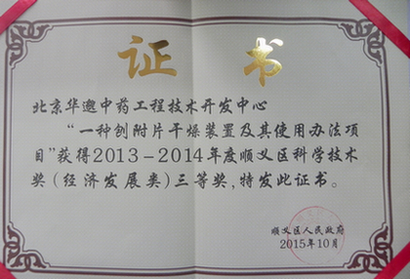 证书
北京华邈中药工程技术开发中心
“一种刨附片干燥装置及其使用办法项
目”获得2013-2014年度顺义区科学技术
奖(经济发展类)三等奖,特发此证书。
顺义区人民政府
2015年10月